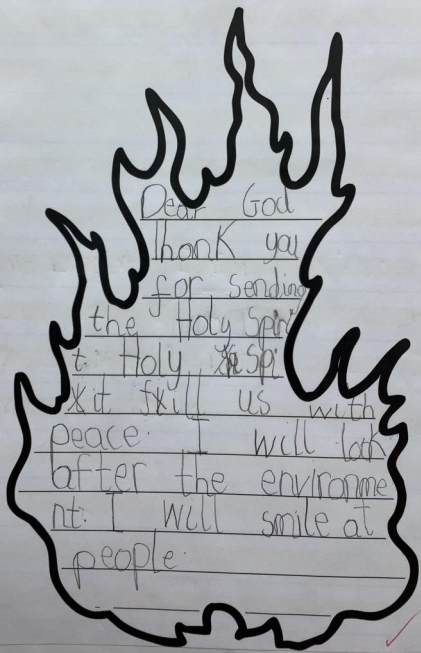 Dear God
Thank you
for sending
the Holy Spiri
t. Holy Spi
rit fill us with
peace. I will look
after the environme
nt. I will smile at
people.